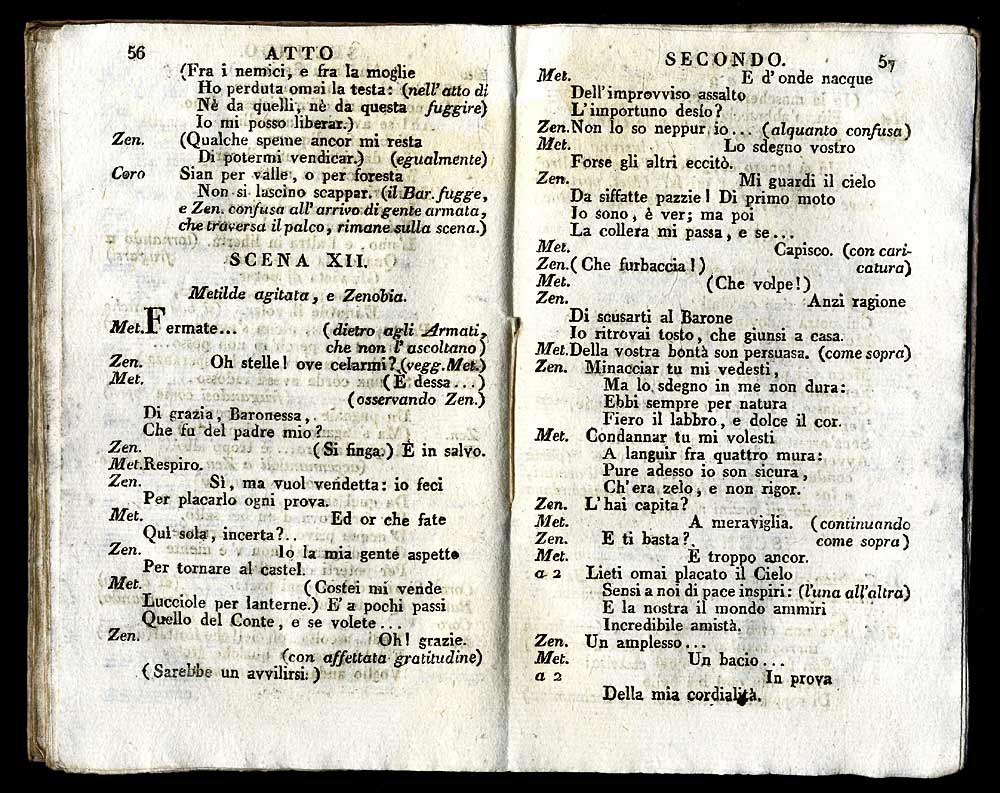 56 ATTO
(Fra i nemici, e fra la moglie
Ho perduta omai la testa: (nell' atto di
Nè da quelli, nè da questa fuggire)
Io mi posso liberar.)
Zen. (Qualche speme ancor mi resta
Di potermi vendicar.) (egualmente)
Coro Sian per valle, o per foresta
Non si lascino scappar. (il Bar. fugge,
e Zen. confusa all' arrivo di gente armata,
che traversa il palco, rimane sulla scena.)
SCENA XII.
Metilde agitata, e Zenobia.
Met. Fermate... (dietro agli Armati,
che non l' ascoltano)
Zen. Oh stelle! ove celarmi? (vegg. Met.)
Met. (È dessa...)
(osservando Zen.)
Di grazia, Baronessa,
Che fu del padre mio?
Zen. (Si finga.) È in salvo.
Met. Respiro.
Zen. Sì, ma vuol vendetta: io feci
Per placarlo ogni prova.
Met. Ed or che fate
Qui sola, incerta?..
Zen. Io la mia gente aspetto
Per tornare al castel.
Met. (Costei mi vende
Lucciole per lanterne.) E' a pochi passi
Quello del Conte, e se volete...
Zen. Oh! grazie.
(con affettata gratitudine)
(Sarebbe un avvilirsi.)
SECONDO. 57
Met. E d' onde nacque
Dell' improvviso assalto
L' importuno desío?
Zen. Non lo so neppur io... (alquanto confusa)
Met. Lo sdegno vostro
Forse gli altri eccitò.
Zen. Mi guardi il cielo
Da siffatte pazzie! Di primo moto
Io sono, è ver; ma poi
La collera mi passa, e se...
Met. Capisco. (con cari-
Zen. (Che furbaccia!) catura)
Met. (Che volpe!)
Zen. Anzi ragione
Di scusarti al Barone
Io ritrovai tosto, che giunsi a casa.
Met. Della vostra bontà son persuasa. (come sopra)
Zen. Minacciar tu mi vedesti,
Ma lo sdegno in me non dura:
Ebbi sempre per natura
Fiero il labbro, e dolce il cor.
Met. Condannar tu mi volesti
A languir fra quattro mura:
Pure adesso io son sicura,
Ch' era zelo, e non rigor.
Zen. L' hai capita?
Met. A meraviglia. (continuando
Zen. E ti basta? come sopra)
Met. È troppo ancor.
a 2 Lieti omai placato il Cielo
Sensi a noi di pace inspiri: (l'una all'altra)
E la nostra il mondo ammiri
Incredibile amistà.
Zen. Un amplesso...
Met. Un bacio...
a 2 In prova
Della mia cordialità.